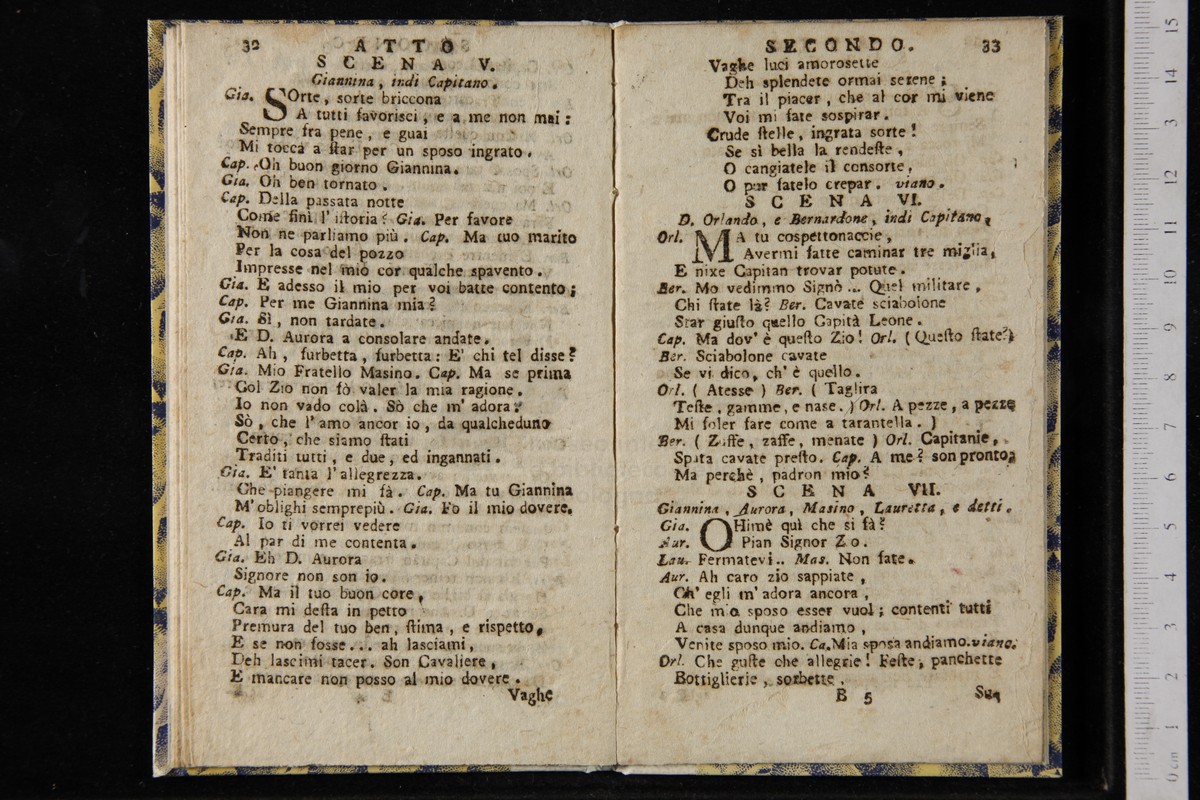 32 ATTO
SCENA V.
Giannina, indi Capitano.
Gia. SOrte, sorte briccona
A tutti favorisci, e a me non mai:
Sempre fra pene, e guai
Mi tocca a ſtar per un sposo ingrato.
Cap. Oh buon giorno Giannina.
Gia. Oh ben tornato.
Cap. Della passata notte
Come finì l' iſtoria? Gia. Per favore
Non ne parliamo più. Cap. Ma tuo marito
Per la cosa del pozzo
Impresse nel mio cor qualche spavento.
Gia. E adesso il mio per voi batte contento;
Cap. Per me Giannina mia?
Gia. Sì, non tardate.
E D. Aurora a consolare andate.
Cap. Ah, furbetta, furbetta: E' chi tel disse?
Gia. Mio Fratello Masino. Cap. Ma se prima
Col Zio non fò valer la mia ragione.
Io non vado colà. Sò che m' adora:
Sò, che l' amo ancor io, da qualcheduno
Certo, che siamo ſtati
Traditi tutti, e due, ed ingannati.
Gia. E' tanta l' allegrezza.
Che piangere mi fà. Cap. Ma tu Giannina
M' oblighi semprepiù. Gia. Fo il mio dovere.
Cap. Io ti vorrei vedere
Al par di me contenta.
Gia. Eh D. Aurora
Signore non son io.
Cap. Ma il tuo buon core,
Cara mi deſta in petto
Premura del tuo ben, ſtima, e rispetto,
E se non fosse... ah lasciami,
Deh lascimi tacer. Son Cavaliere,
E mancare non posso al mio dovere.
Vaghe
SECONDO. 33
Vaghe luci amorosette
Deh splendete ormai serene;
Tra il piacer, che al cor mi viene
Voi mi fate sospirar.
Crude ſtelle, ingrata sorte!
Se sì bella la rendeſte,
O cangiatele il consorte,
O pur fatelo crepar. viano.
SCENA VI.
D. Orlando, e Bernardone, indi Capitano,
Orl. MA tu cospettonaccie,
Avermi fatte caminar tre miglia,
E nixe Capitan trovar potute.
Ber. Mo vedimmo Signò... Quel militare,
Chi ſtate là? Ber. Cavate sciabolone
Star giuſto quello Capità Leone.
Cap. Ma dov' è queſto Zio! Orl. (Queſto ſtate?)
Ber. Sciabolone cavate
Se vi dico, ch' è quello.
Orl. (Atesse) Ber. (Taglira
Teſte, gamme, e nase.) Orl. A pezze, a pezze
Mi foler fare come a tarantella.)
Ber. (Zaffe, zaffe, menate) Orl. Capitanie,
Spata cavate preſto. Cap. A me? son pronto,
Ma perchè, padron mio?
SCENA VII.
Giannina, Aurora, Masino, Lauretta, e detti.
Gia. OHimè quì che si fà?
Aur. Pian Signor Z o.
Lau. Fermatevi.. Mas. Non fate.
Aur. Ah caro zio sappiate,
Ch' egli m' adora ancora,
Che mio sposo esser vuol; contenti tutti
A casa dunque andiamo,
Venite sposo mio. Ca. Mia sposa andiamo. viano.
Orl. Che guſte che allegrie! Feſte, panchette
Bottiglierie, sorbette,
B 5 Su,